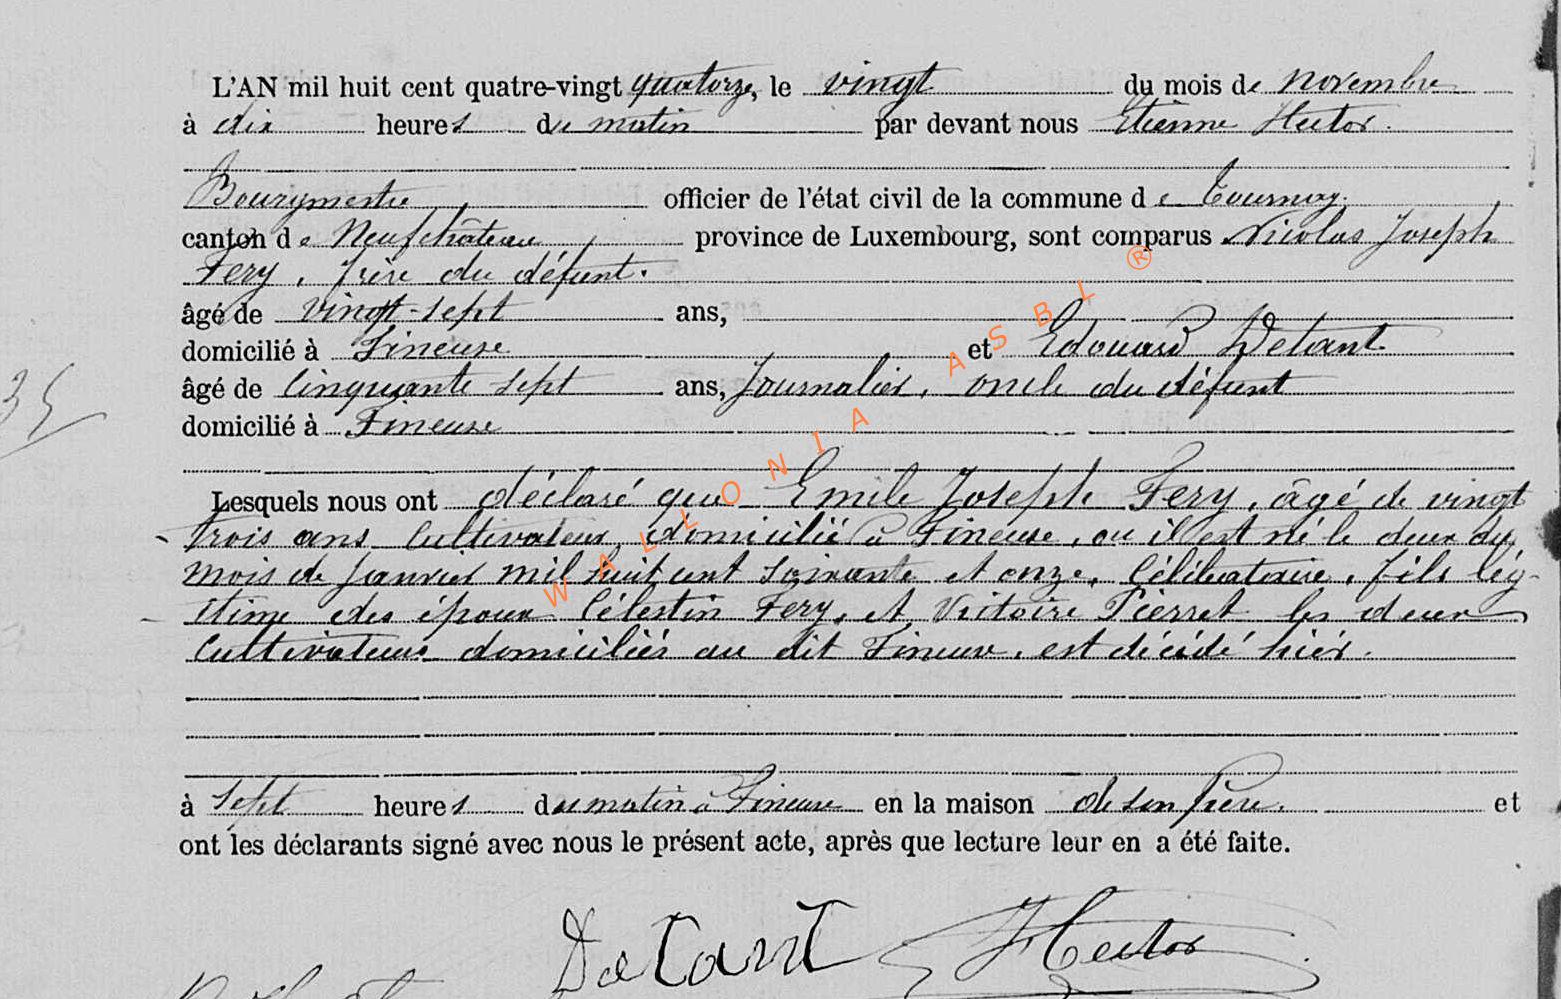 L'AN mil huit cent quatre-vingt quatorze, le vingt du mois de novembre
à dix heures du matin par devant nous Etienne Hector.
Bourgmestre officier de l'état civil de la commune de Tournay.
canton de Neufchâteau, province de Luxembourg, sont comparus Nicolas Joseph
Fery, frère du défunt.
âgé de vingt-sept ans,
domicilié à Fineuse et Edouard Detant
âgé de Cinquante sept ans, Journalier, oncle du défunt
domicilié à Fineuse
Lesquels nous ont déclaré que Emile Joseph Fery, âgé de vingt
-trois ans Cultivateur, domicilié à Fineuse, ou il est né le deux du
mois de Janvier mil huit cent soixante et onze, Célibataire, fils lég-
-itime des époux Célestin Fery, et Victoire Pierret les deux
Cultivateurs domiciliés au dit Fineuse, est décédé hier.
à sept heures du matin à Fineuse en la maison de son Père. et
ont les déclarants signé avec nous le présent acte, après que lecture leur en a été faite.
35
Detant Hector
WALLONIA ASBL ®